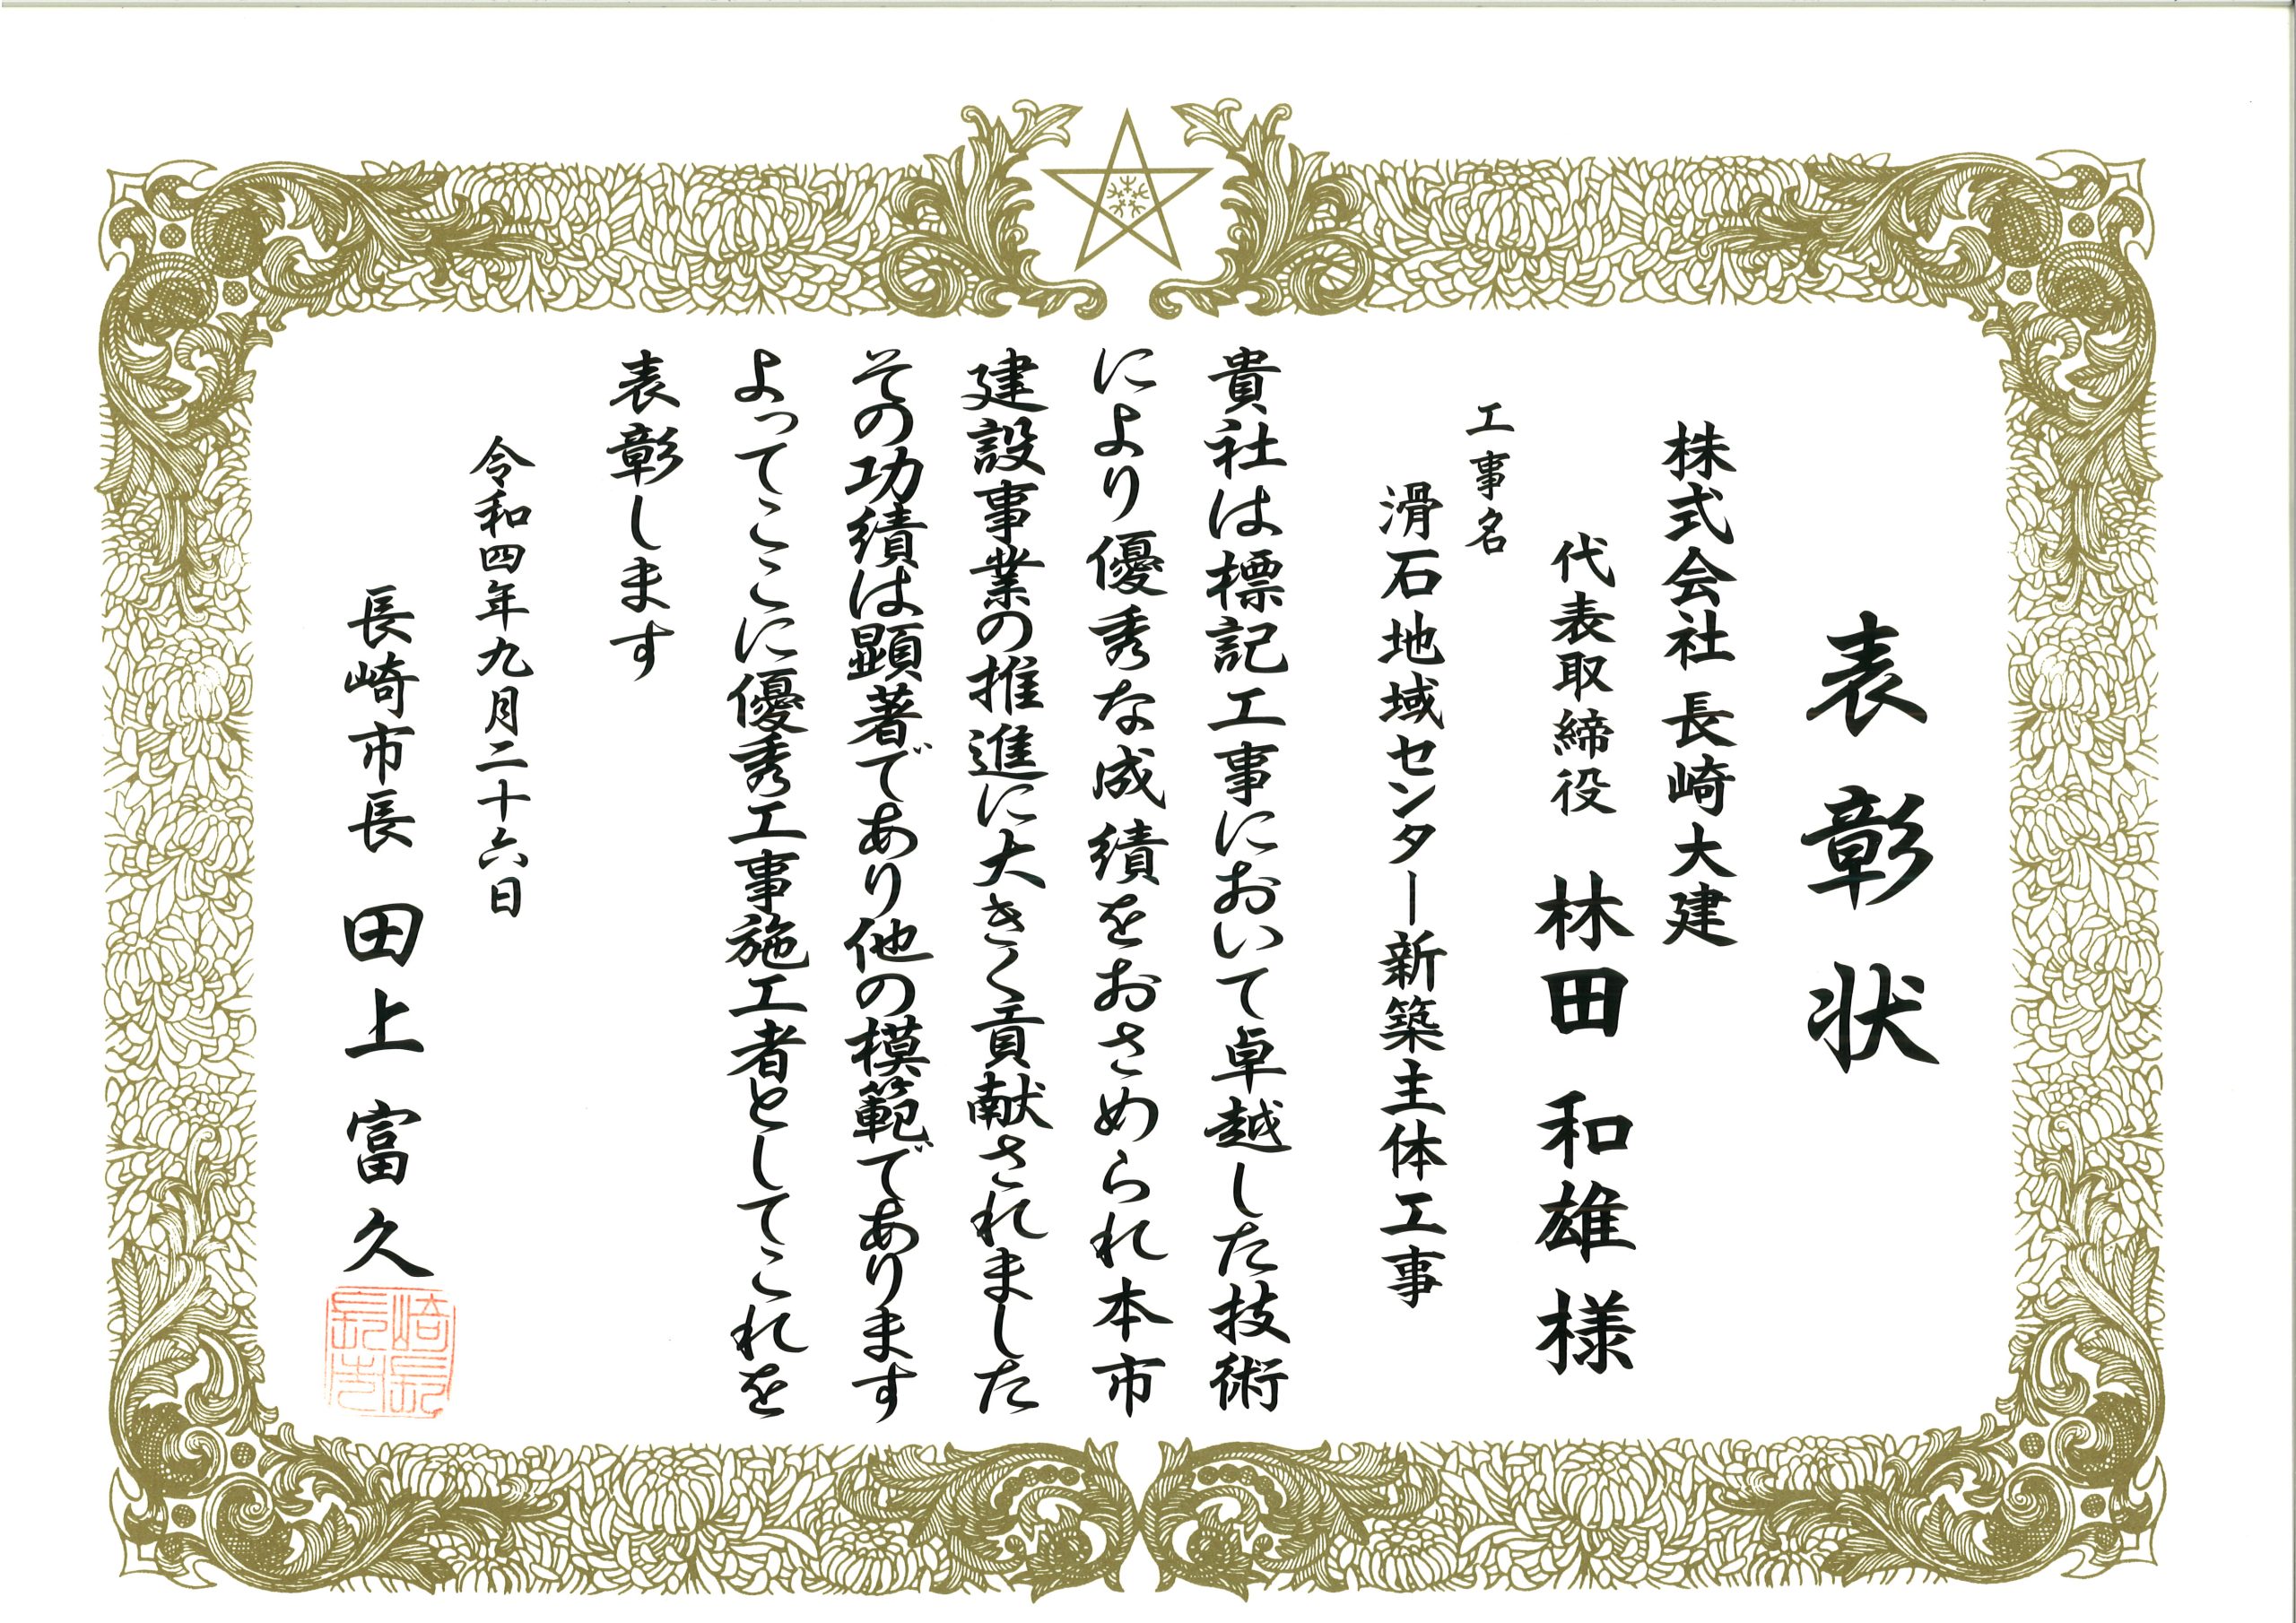 表彰状
株式会社 長崎大建
代表取締役 林田 和雄 様
工事名
滑石地域センター新築主体工事
貴社は標記工事において卓越した技術
により優秀な成績をおさめられ本市
建設事業の推進に大きく貢献されました
その功績は顕著であり他の模範であります
よってここに優秀工事施工者としてこれを
表彰します
令和四年九月二十六日
長崎市長 田上 富久
長崎市長